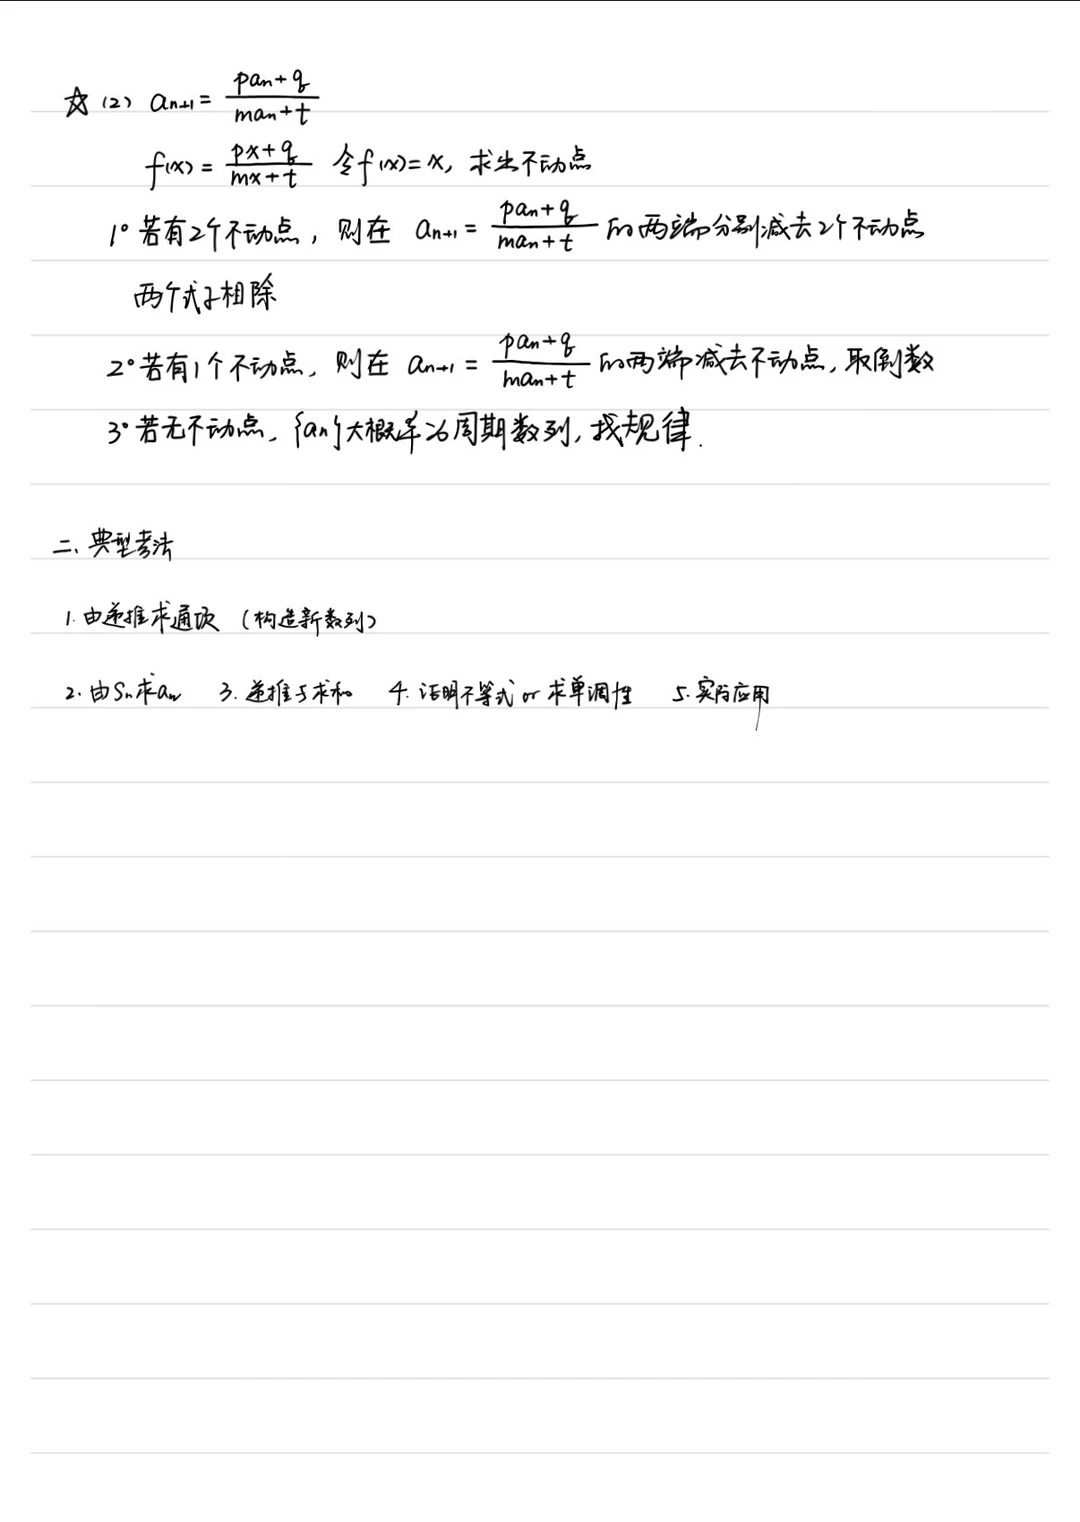 ☆ (2) aₙ₊₁ = (paₙ+q)/(maₙ+t)
f(x) = (px+q)/(mx+t) 令f(x)=x, 求出不动点
1° 若有2个不动点, 则在 aₙ₊₁ = (paₙ+q)/(maₙ+t) 的两端分别减去2个不动点
两个式子相除
2° 若有1个不动点, 则在 aₙ₊₁ = (paₙ+q)/(maₙ+t) 的两端减去不动点, 取倒数
3° 若无不动点, {aₙ}大概率为周期数列, 找规律.
二、典型考法
1. 由递推求通项 (构造新数列)
2. 由Sₙ求aₙ 3. 递推与求和 4. 证明不等式 or 求单调性 5. 实际应用